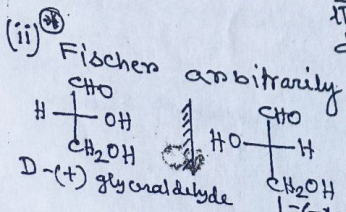 (ii) Fischer arbitrarily
CHO
H OH
CH₂OH
D-(+) glyceraldehyde
CHO
HO H
CH₂OH